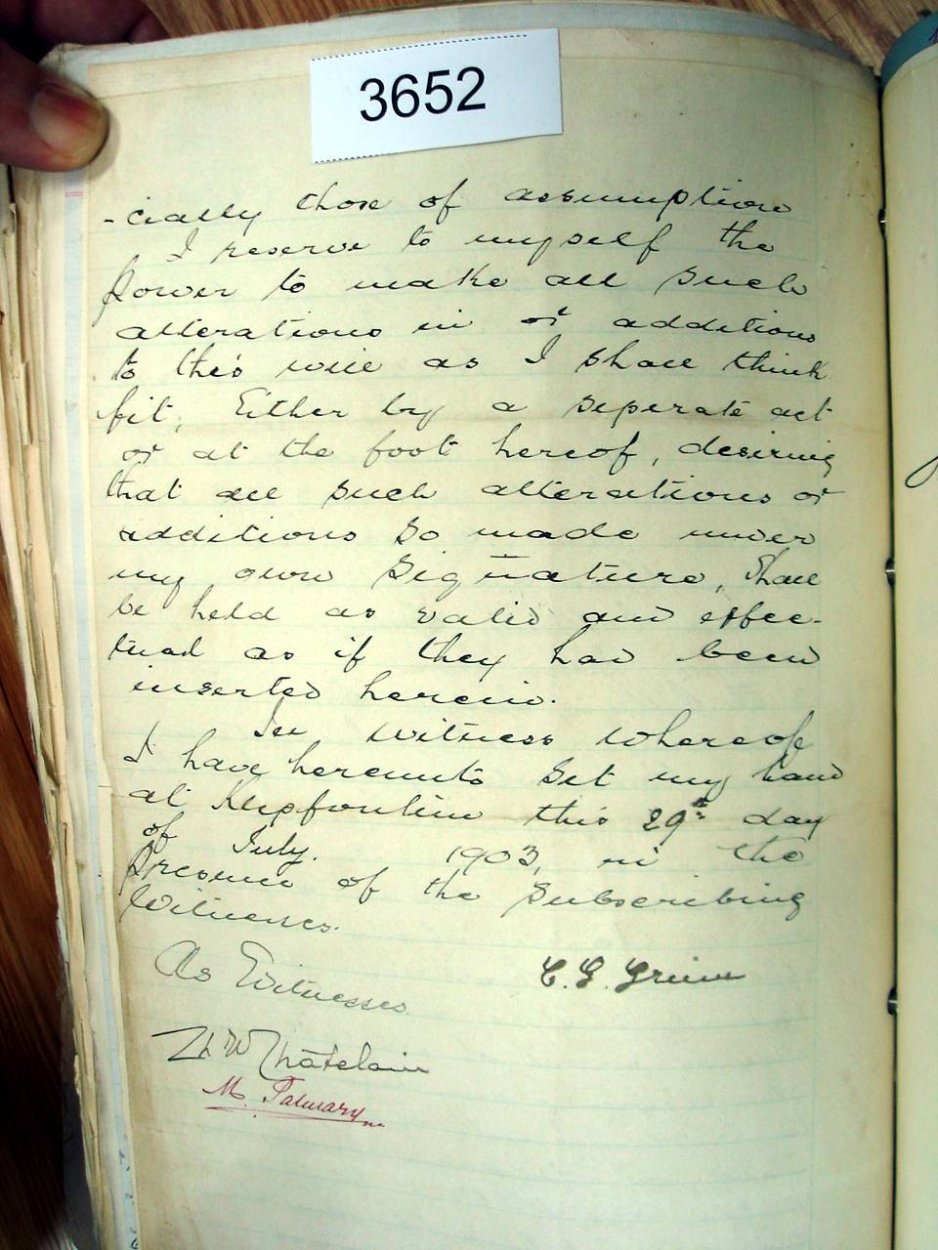 3652
-cially those of assumption
I reserve to myself the
Power to make all such
alterations in or additions
to this will as I shall think
fit, Either by a seperate act
or at the foot hereof, desiring
that all such alterations or
additions so made under
my own Signature, Shall
be held as valid and effec-
tual as if they had been
inserted herein.
In witness whereof
I have hereunto set my hand
at Klipfontein this 29th day
of July. 1903, in the
Presence of the Subscribing
Witnesses.
As Witnesses
C. G. Grimm
W Chatelain
M. Palmary